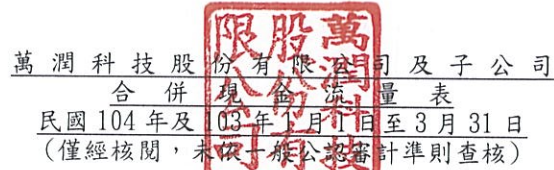 萬潤科技股份有限公司及子公司
合併現金流量表
民國 104 年及 103 年 1 月 1 日至 3 月 31 日
(僅經核閱，未依一般公認審計準則查核)
萬潤科技
股份有
限公司